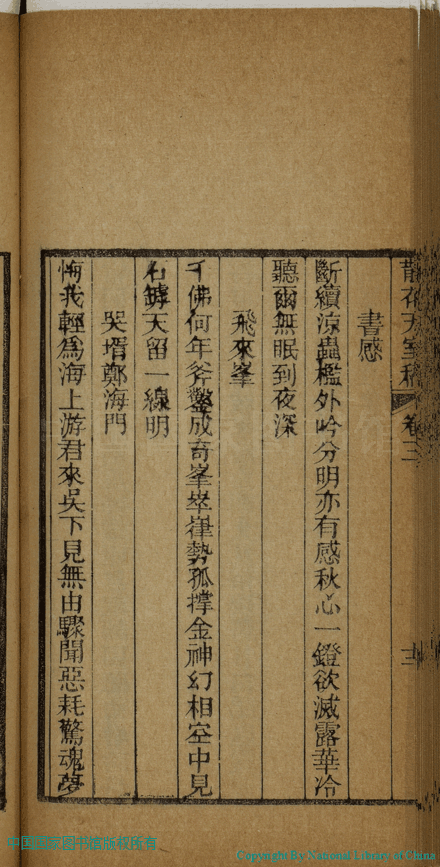 散花天室稿 卷三 十二
書感
斷續涼蟲檻外吟分明亦有感秋心一鐙欲滅露華冷
聽爾無眠到夜深
飛來峯
千佛何年斧鑿成奇峯崒嵂勢孤撐金神幻相空中見
石罅天留一線明
哭壻鄭海門
悔我輕爲海上游君來吳下見無由驟聞惡耗驚魂夢
中国国家图书馆版权所有
Copyright By National Library of China